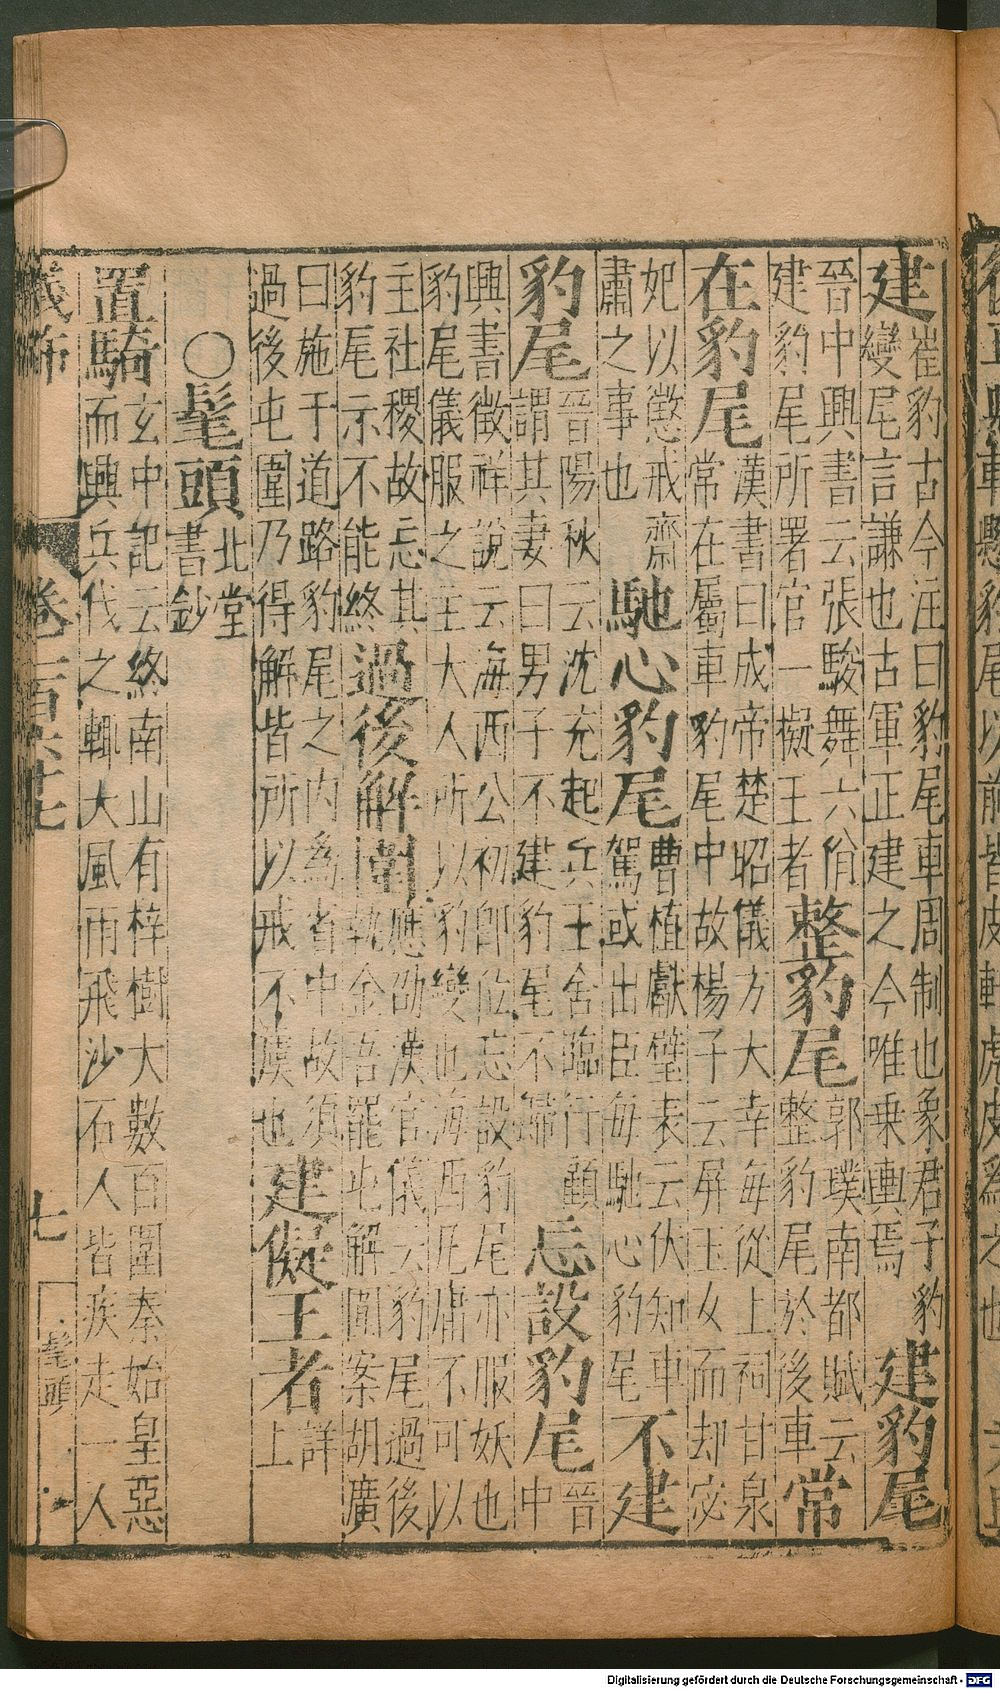 建
崔豹古今注曰豹尾車周制也象君子豹
變尾言謙也古軍正建之今唯乗輿焉
建豹尾
晉中興書云張駿舞六佾
建豹尾所署官一擬王者
整豹尾
郭璞南都賦云
整豹尾於後車
常
在豹尾
漢書曰成帝楚昭儀方大幸每從上祠甘泉
常在屬車豹尾中故楊子云屏玉女而却宓
妃以懲戒齋
肅之事也
馳心豹尾
曹植獻璧表云伏知車
駕或出臣每馳心豹尾
不建
豹尾
晉陽秋云沈充起兵王舍臨行顧
謂其妻曰男子不建豹尾不歸
忘設豹尾
晉
中
興書徴祥說云海西公初即位忘設豹尾亦服妖也
豹尾儀服之主大人所以豹變也海西庸不可以
主社稷故忘其
豹尾示不能終
過後解圍
應劭漢官儀云豹尾過後
執金吾罷屯解圍案胡廣
曰施于道路豹尾之内為省中故須
過後屯圍乃得解皆所以戒不虞也
建儗王者
詳
上
○髦頭
北堂
書鈔
置騎
玄中記云終南山有梓樹大數百圍秦始皇惡
而興兵伐之輒大風雨飛沙石人皆疾走一人
儀飾
卷一百六十七
七
髦頭
Digitalisierung gefördert durch die Deutsche Forschungsgemeinschaft - DFG